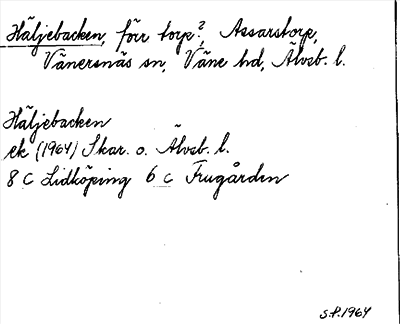 Häljebacken, förr torp?, Assarstorp,
Vänersnäs sn, Väne hd, Älvsb. l.
Häljebacken
ek (1964) Skar. o. Älvsb. l.
8 C Lidköping 6 c Frugården
S.P.1964